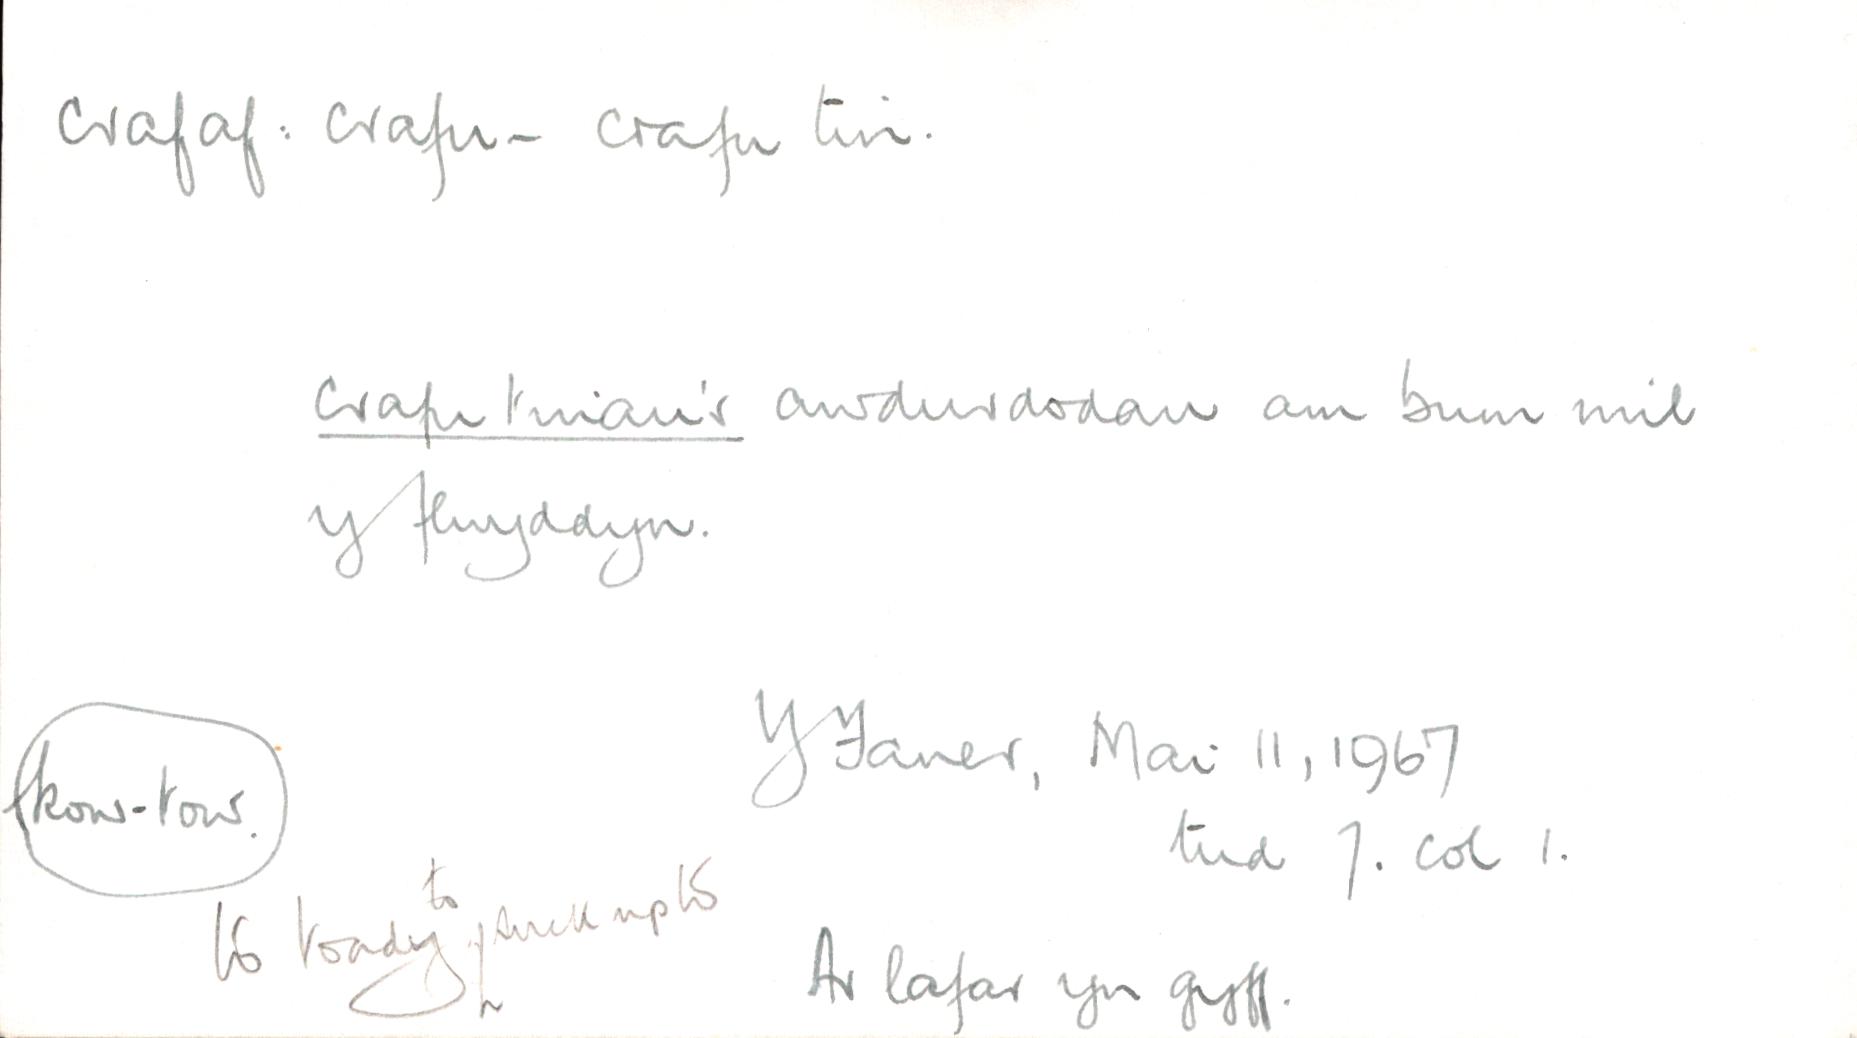 crafaf: crafu – crafu tin.
crafu tinau'r awdurdodau am bum mil
y flwyddyn.
Y Faner, Mai 11, 1967
kow-tow.
tud 7. col 1.
to toady to, suck up to
Ar lafar yn gyff.